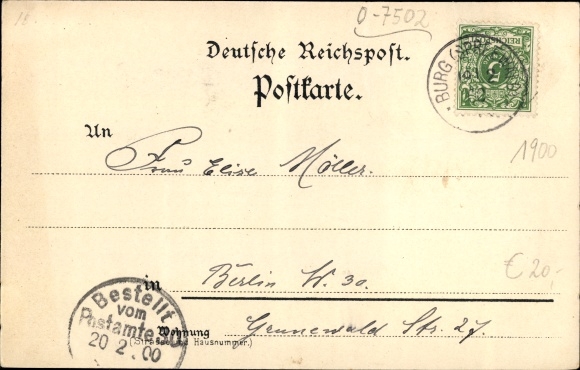 O-7502
Deutsche Reichspost.
Postkarte.
REICHSPOST
5
BURG (SPREEWALD)
An
1900
Frau Elise Möller.
€ 20,-
in Berlin W. 30.
Wohnung Grunewald Str. 27.
(Strasse und Hausnummer.)
Bestellt
vom
Postamte
20 2 00